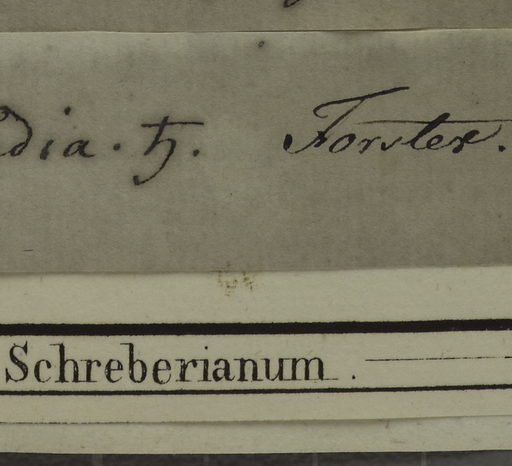 dia. ♄. Forster.
Schreberianum.